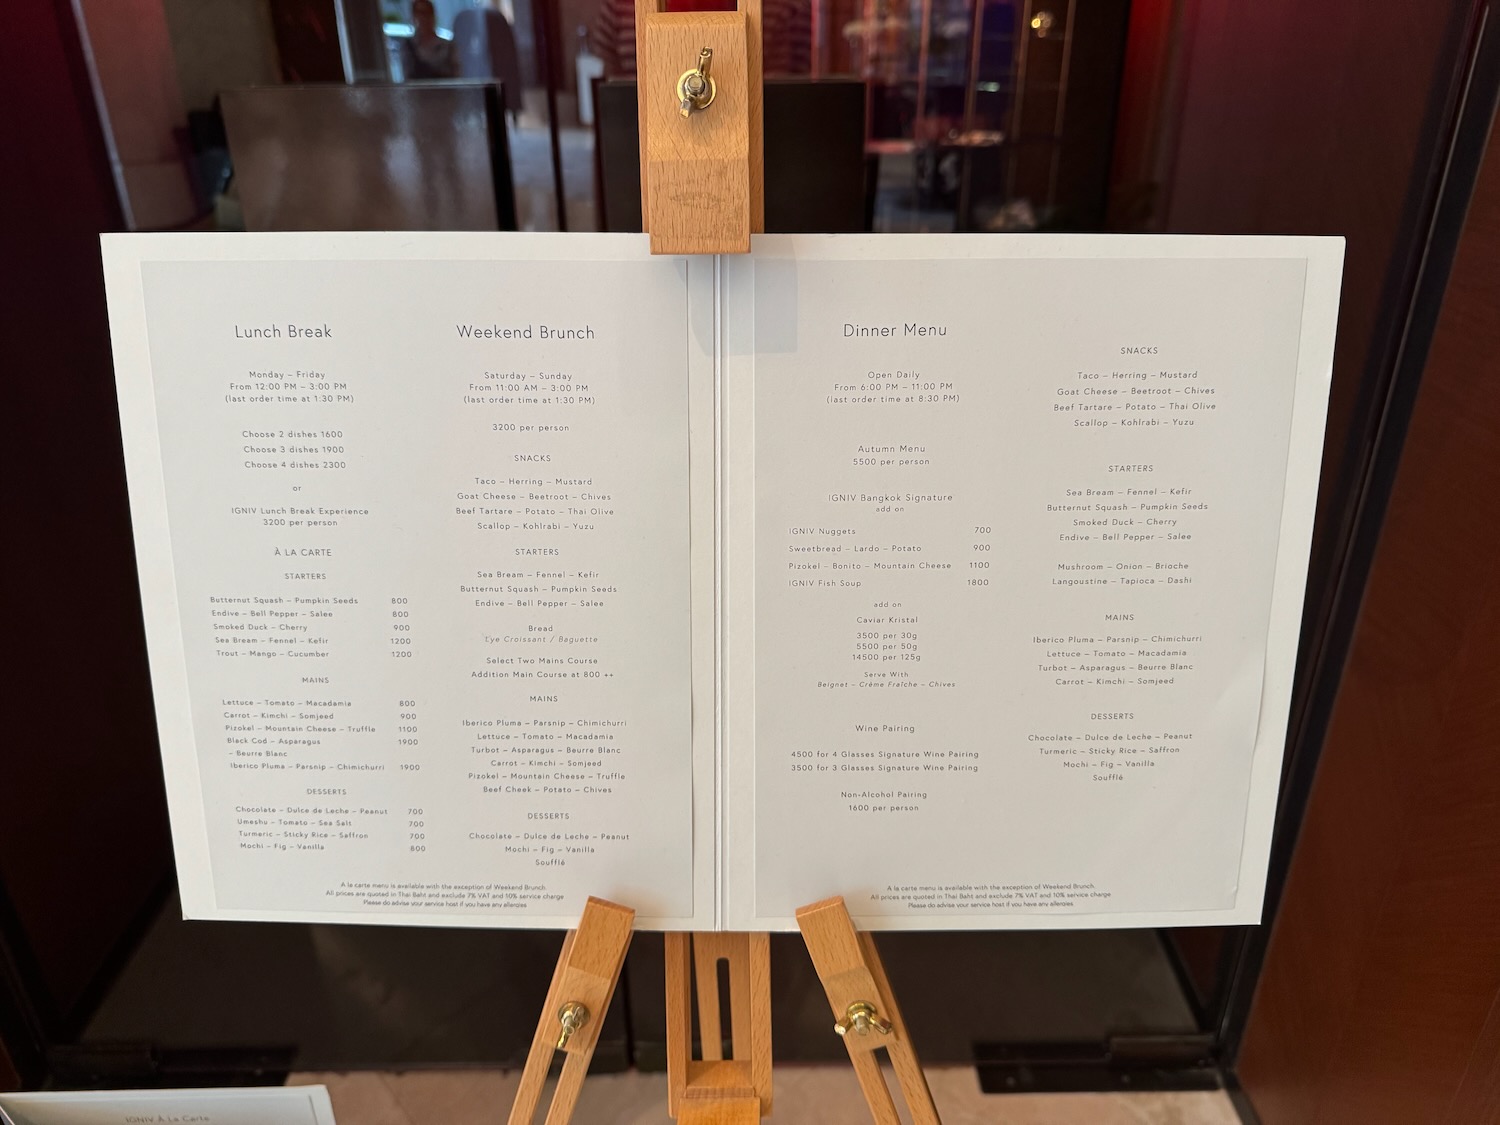 Lunch Break
Monday – Friday
From 12:00 PM – 3:00 PM
(last order time at 1:30 PM)
Choose 2 dishes 1600
Choose 3 dishes 1900
Choose 4 dishes 2300
or
IGNIV Lunch Break Experience
3200 per person
À LA CARTE
STARTERS
Butternut Squash – Pumpkin Seeds 800
Endive – Bell Pepper – Salee 800
Smoked Duck – Cherry 900
Sea Bream – Fennel – Kefir 1200
Trout – Mango – Cucumber 1200
MAINS
Lettuce – Tomato – Macadamia 800
Carrot – Kimchi – Somjeed 900
Pizokel – Mountain Cheese – Truffle 1100
Black Cod – Asparagus 1900
– Beurre Blanc
Iberico Pluma – Parsnip – Chimichurri 1900
DESSERTS
Chocolate – Dulce de Leche – Peanut 700
Umeshu – Tomato – Sea Salt 700
Turmeric – Sticky Rice – Saffron 700
Mochi – Fig – Vanilla 800
Weekend Brunch
Saturday – Sunday
From 11:00 AM – 3:00 PM
(last order time at 1:30 PM)
3200 per person
SNACKS
Taco – Herring – Mustard
Goat Cheese – Beetroot – Chives
Beef Tartare – Potato – Thai Olive
Scallop – Kohlrabi – Yuzu
STARTERS
Sea Bream – Fennel – Kefir
Butternut Squash – Pumpkin Seeds
Endive – Bell Pepper – Salee
Bread
Lye Croissant / Baguette
Select Two Mains Course
Addition Main Course at 800 ++
MAINS
Iberico Pluma – Parsnip – Chimichurri
Lettuce – Tomato – Macadamia
Turbot – Asparagus – Beurre Blanc
Carrot – Kimchi – Somjeed
Pizokel – Mountain Cheese – Truffle
Beef Cheek – Potato – Chives
DESSERTS
Chocolate – Dulce de Leche – Peanut
Mochi – Fig – Vanilla
Soufflé
A la carte menu is available with the exception of Weekend Brunch.
All prices are quoted in Thai Baht and exclude 7% VAT and 10% service charge
Please do advise your service host if you have any allergies
Dinner Menu
Open Daily
From 6:00 PM – 11:00 PM
(last order time at 8:30 PM)
Autumn Menu
5500 per person
IGNIV Bangkok Signature
add on
IGNIV Nuggets 700
Sweetbread – Lardo – Potato 900
Pizokel – Bonito – Mountain Cheese 1100
IGNIV Fish Soup 1800
add on
Caviar Kristal
3500 per 30g
5500 per 50g
14500 per 125g
Serve With
Beignet – Crème Fraîche – Chives
Wine Pairing
4500 for 4 Glasses Signature Wine Pairing
3500 for 3 Glasses Signature Wine Pairing
Non-Alcohol Pairing
1600 per person
SNACKS
Taco – Herring – Mustard
Goat Cheese – Beetroot – Chives
Beef Tartare – Potato – Thai Olive
Scallop – Kohlrabi – Yuzu
STARTERS
Sea Bream – Fennel – Kefir
Butternut Squash – Pumpkin Seeds
Smoked Duck – Cherry
Endive – Bell Pepper – Salee
Mushroom – Onion – Brioche
Langoustine – Tapioca – Dashi
MAINS
Iberico Pluma – Parsnip – Chimichurri
Lettuce – Tomato – Macadamia
Turbot – Asparagus – Beurre Blanc
Carrot – Kimchi – Somjeed
DESSERTS
Chocolate – Dulce de Leche – Peanut
Turmeric – Sticky Rice – Saffron
Mochi – Fig – Vanilla
Soufflé
A la carte menu is available with the exception of Weekend Brunch.
All prices are quoted in Thai Baht and exclude 7% VAT and 10% service charge
Please do advise your service host if you have any allergies
IGNIV À La Carte